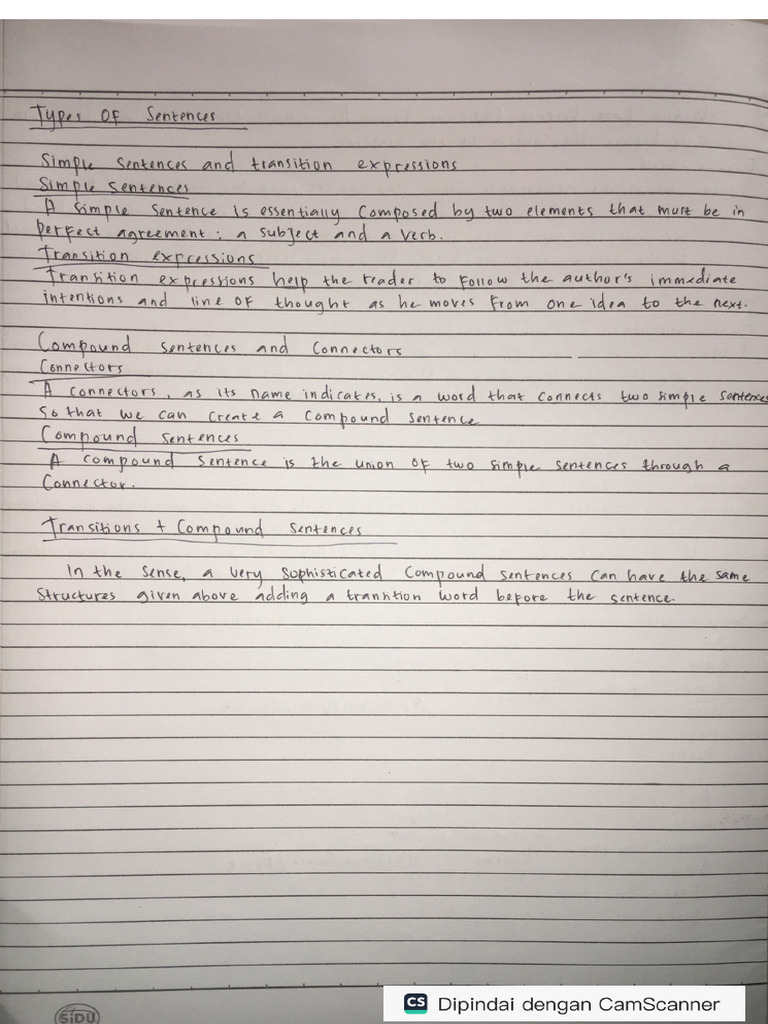 Types of Sentences
Simple Sentences and transition expressions
Simple Sentences
A Simple Sentence is essentially composed by two elements that must be in
perfect agreement : a subject and a verb.
Transition expressions
Transition expressions help the reader to follow the author's immediate
intentions and line of thought as he moves from one idea to the next.
Compound sentences and connectors
Connectors
A connectors, as its name indicates, is a word that connects two simple sentences
So that we can create a compound sentence
Compound sentences
A compound sentence is the union of two simple sentences through a
Connector.
Transitions + Compound sentences
In the sense, a very sophisticated compound sentences can have the same
Structures given above adding a transition word before the sentence.
SIDU
CS Dipindai dengan CamScanner